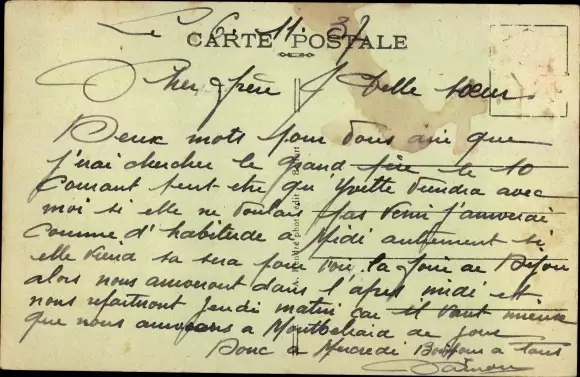 Le 6. 11. 37
CARTE POSTALE
Cher frère & Belle soeur
Deux mots pour vous dire que
j'irai chercher le grand père le 10
courant peut-etre qu'Yvette viendra avec
moi si elle ne voulais pas venir j'arriverai
comme d'habitude a Midi autrement si
elle viend sa sera pour voir la foire de Dijon
alors nous arriveront dans l'apres midi et
nous repartiront Jeudi matin car il vaut mieux
que nous arrivions a Montbeliard de jour
Donc a Mercredi Bonjour a tous